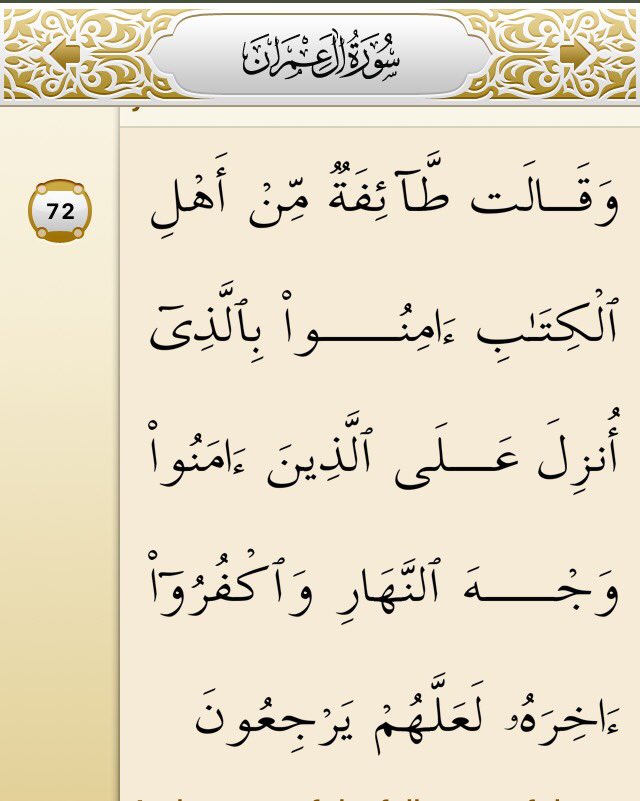 سُورَةُ آلِ عِمْرَانَ
وَقَالَت طَّآئِفَةٌ مِّنْ أَهْلِ
72
ٱلْكِتَـٰبِ ءَامِنُوا۟ بِٱلَّذِىٓ
أُنزِلَ عَلَى ٱلَّذِينَ ءَامَنُوا۟
وَجْهَ ٱلنَّهَارِ وَٱكْفُرُوٓا۟
ءَاخِرَهُۥ لَعَلَّهُمْ يَرْجِعُونَ